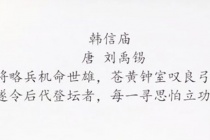 韩信庙
唐 刘禹锡
将略兵机命世雄，苍黄钟室叹良弓
遂令后代登坛者，每一寻思怕立功